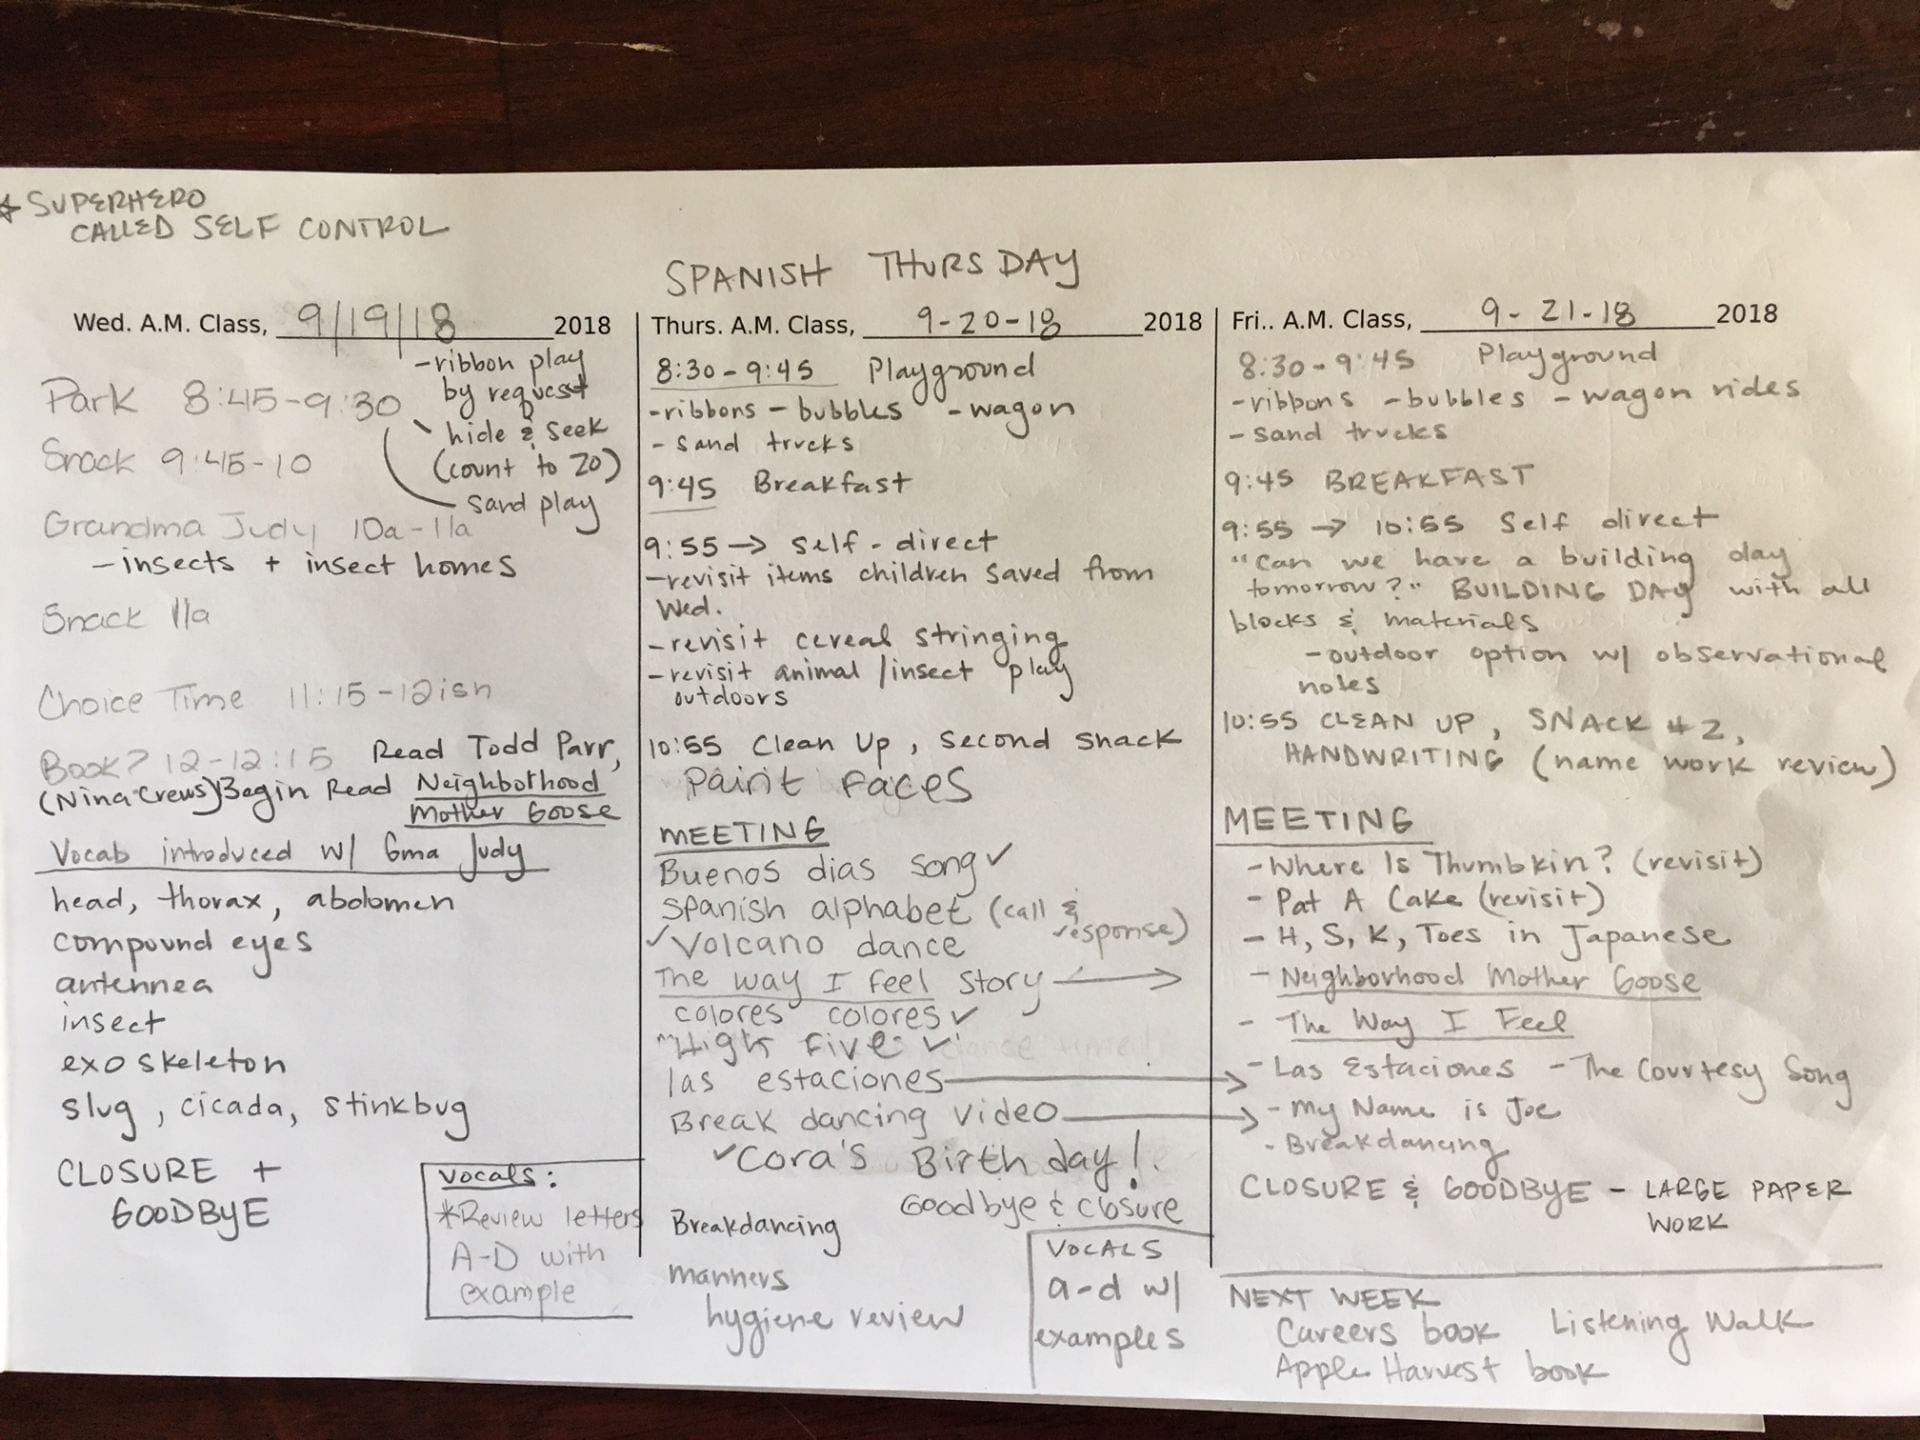 ☆ SUPERHERO
CALLED SELF CONTROL
SPANISH THURSDAY
Wed. A.M. Class, 9/19/18 2018
-ribbon play
by request
Park 8:45-9:30
hide & seek
(count to 20)
Snack 9:45-10
sand play
Grandma Judy 10a-11a
-insects + insect homes
Snack 11a
Choice Time 11:15-12ish
Book? 12-12:15 Read Todd Parr,
(Nina Crews) Begin Read Neighborhood
Mother Goose
Vocab introduced w/ Gma Judy
head, thorax, abdomen
compound eyes
antennea
insect
exoskeleton
slug, cicada, stinkbug
CLOSURE +
GOODBYE
Vocals:
*Review letters
A-D with
example
Thurs. A.M. Class, 9-20-18 2018
8:30-9:45 Playground
-ribbons -bubbles -wagon
-sand trucks
9:45 Breakfast
9:55 → self-direct
-revisit items children saved from
Wed.
-revisit cereal stringing
-revisit animal/insect play
outdoors
10:55 Clean Up, second snack
Paint Faces
MEETING
Buenos dias song ✓
Spanish alphabet (call &
response)
✓Volcano dance
The way I feel story →
colores colores ✓
"High Five" ✓
las estaciones →
Break dancing video →
✓Cora's Birthday!
Goodbye & closure
Breakdancing
manners
hygiene review
VOCALS
a-d w/
examples
Fri.. A.M. Class, 9-21-18 2018
8:30-9:45 Playground
-ribbons -bubbles -wagon rides
-sand trucks
9:45 BREAKFAST
9:55 → 10:55 Self direct
"Can we have a building day
tomorrow?" BUILDING DAY with all
blocks & materials
-outdoor option w/ observational
notes
10:55 CLEAN UP, SNACK #2,
HANDWRITING (name work review)
MEETING
-Where Is Thumbkin? (revisit)
-Pat A Cake (revisit)
-H, S, K, Toes in Japanese
-Neighborhood Mother Goose
-The Way I Feel
-Las Estaciones -The Courtesy Song
-My Name is Joe
-Breakdancing
CLOSURE & GOODBYE - LARGE PAPER
WORK
NEXT WEEK
Careers book Listening Walk
Apple Harvest book